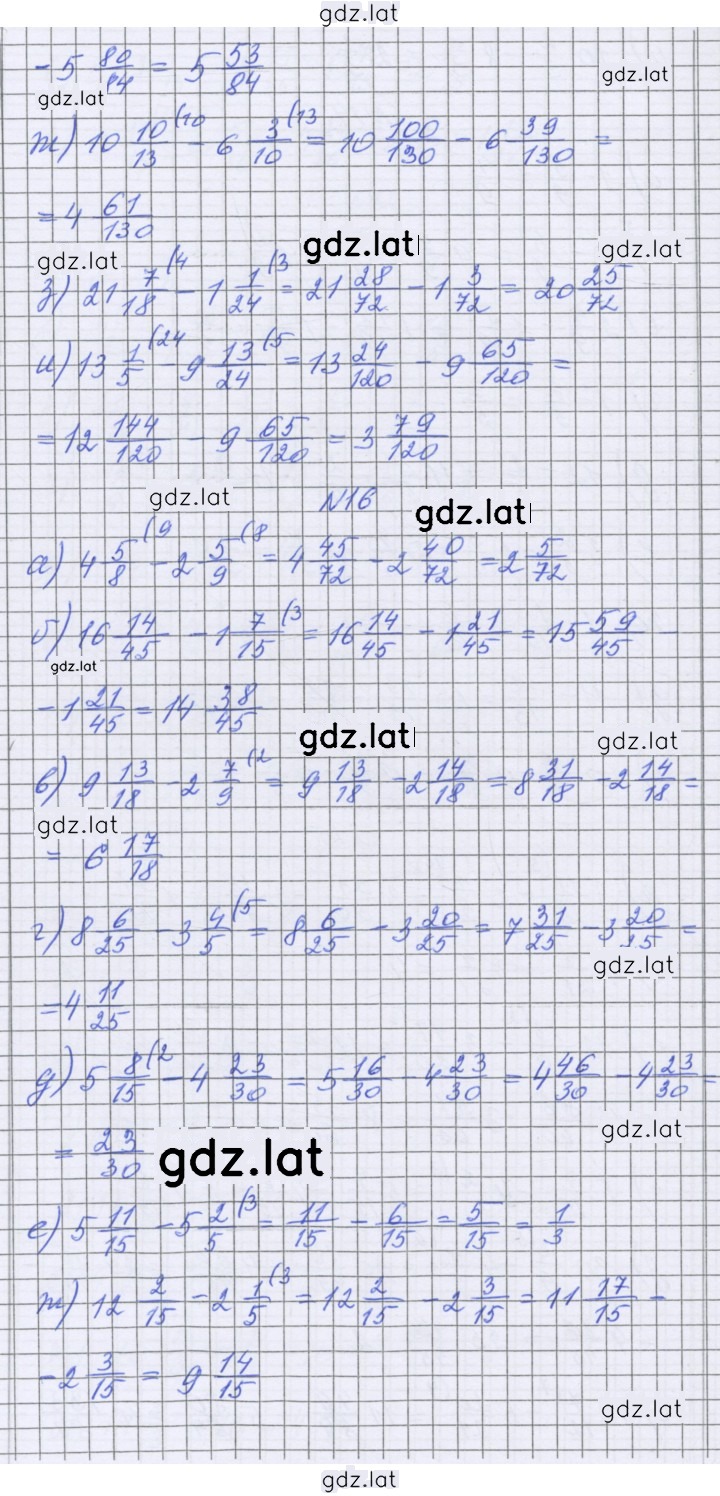 gdz.lat
- 5 80/84 = 5 53/84
gdz.lat
gdz.lat
ж) 10 10/13 (10 - 6 3/10 (13 = 10 100/130 - 6 39/130 =
= 4 61/130
gdz.lat
gdz.lat
gdz.lat
з) 21 7/18 (4 - 1 1/24 (3 = 21 28/72 - 1 3/72 = 20 25/72
и) 13 1/5 (24 - 9 13/24 (5 = 13 24/120 - 9 65/120 =
= 12 144/120 - 9 65/120 = 3 79/120
gdz.lat
N16
gdz.lat
а) 4 5/8 (9 - 2 5/9 (8 = 4 45/72 - 2 40/72 = 2 5/72
б) 16 14/45 - 1 7/15 (3 = 16 14/45 - 1 21/45 = 15 59/45 -
gdz.lat
- 1 21/45 = 14 38/45
gdz.lat
gdz.lat
в) 9 13/18 - 2 7/9 (2 = 9 13/18 - 2 14/18 = 8 31/18 - 2 14/18 =
gdz.lat
= 6 17/18
г) 8 6/25 - 3 4/5 (5 = 8 6/25 - 3 20/25 = 7 31/25 - 3 20/25 =
gdz.lat
= 4 11/25
д) 5 8/15 (2 - 4 23/30 = 5 16/30 - 4 23/30 = 4 46/30 - 4 23/30 =
gdz.lat
= 23/30
gdz.lat
е) 5 11/15 - 5 2/5 (3 = 11/15 - 6/15 = 5/15 = 1/3
ж) 12 2/15 - 2 1/5 (3 = 12 2/15 - 2 3/15 = 11 17/15 -
- 2 3/15 = 9 14/15
gdz.lat
gdz.lat